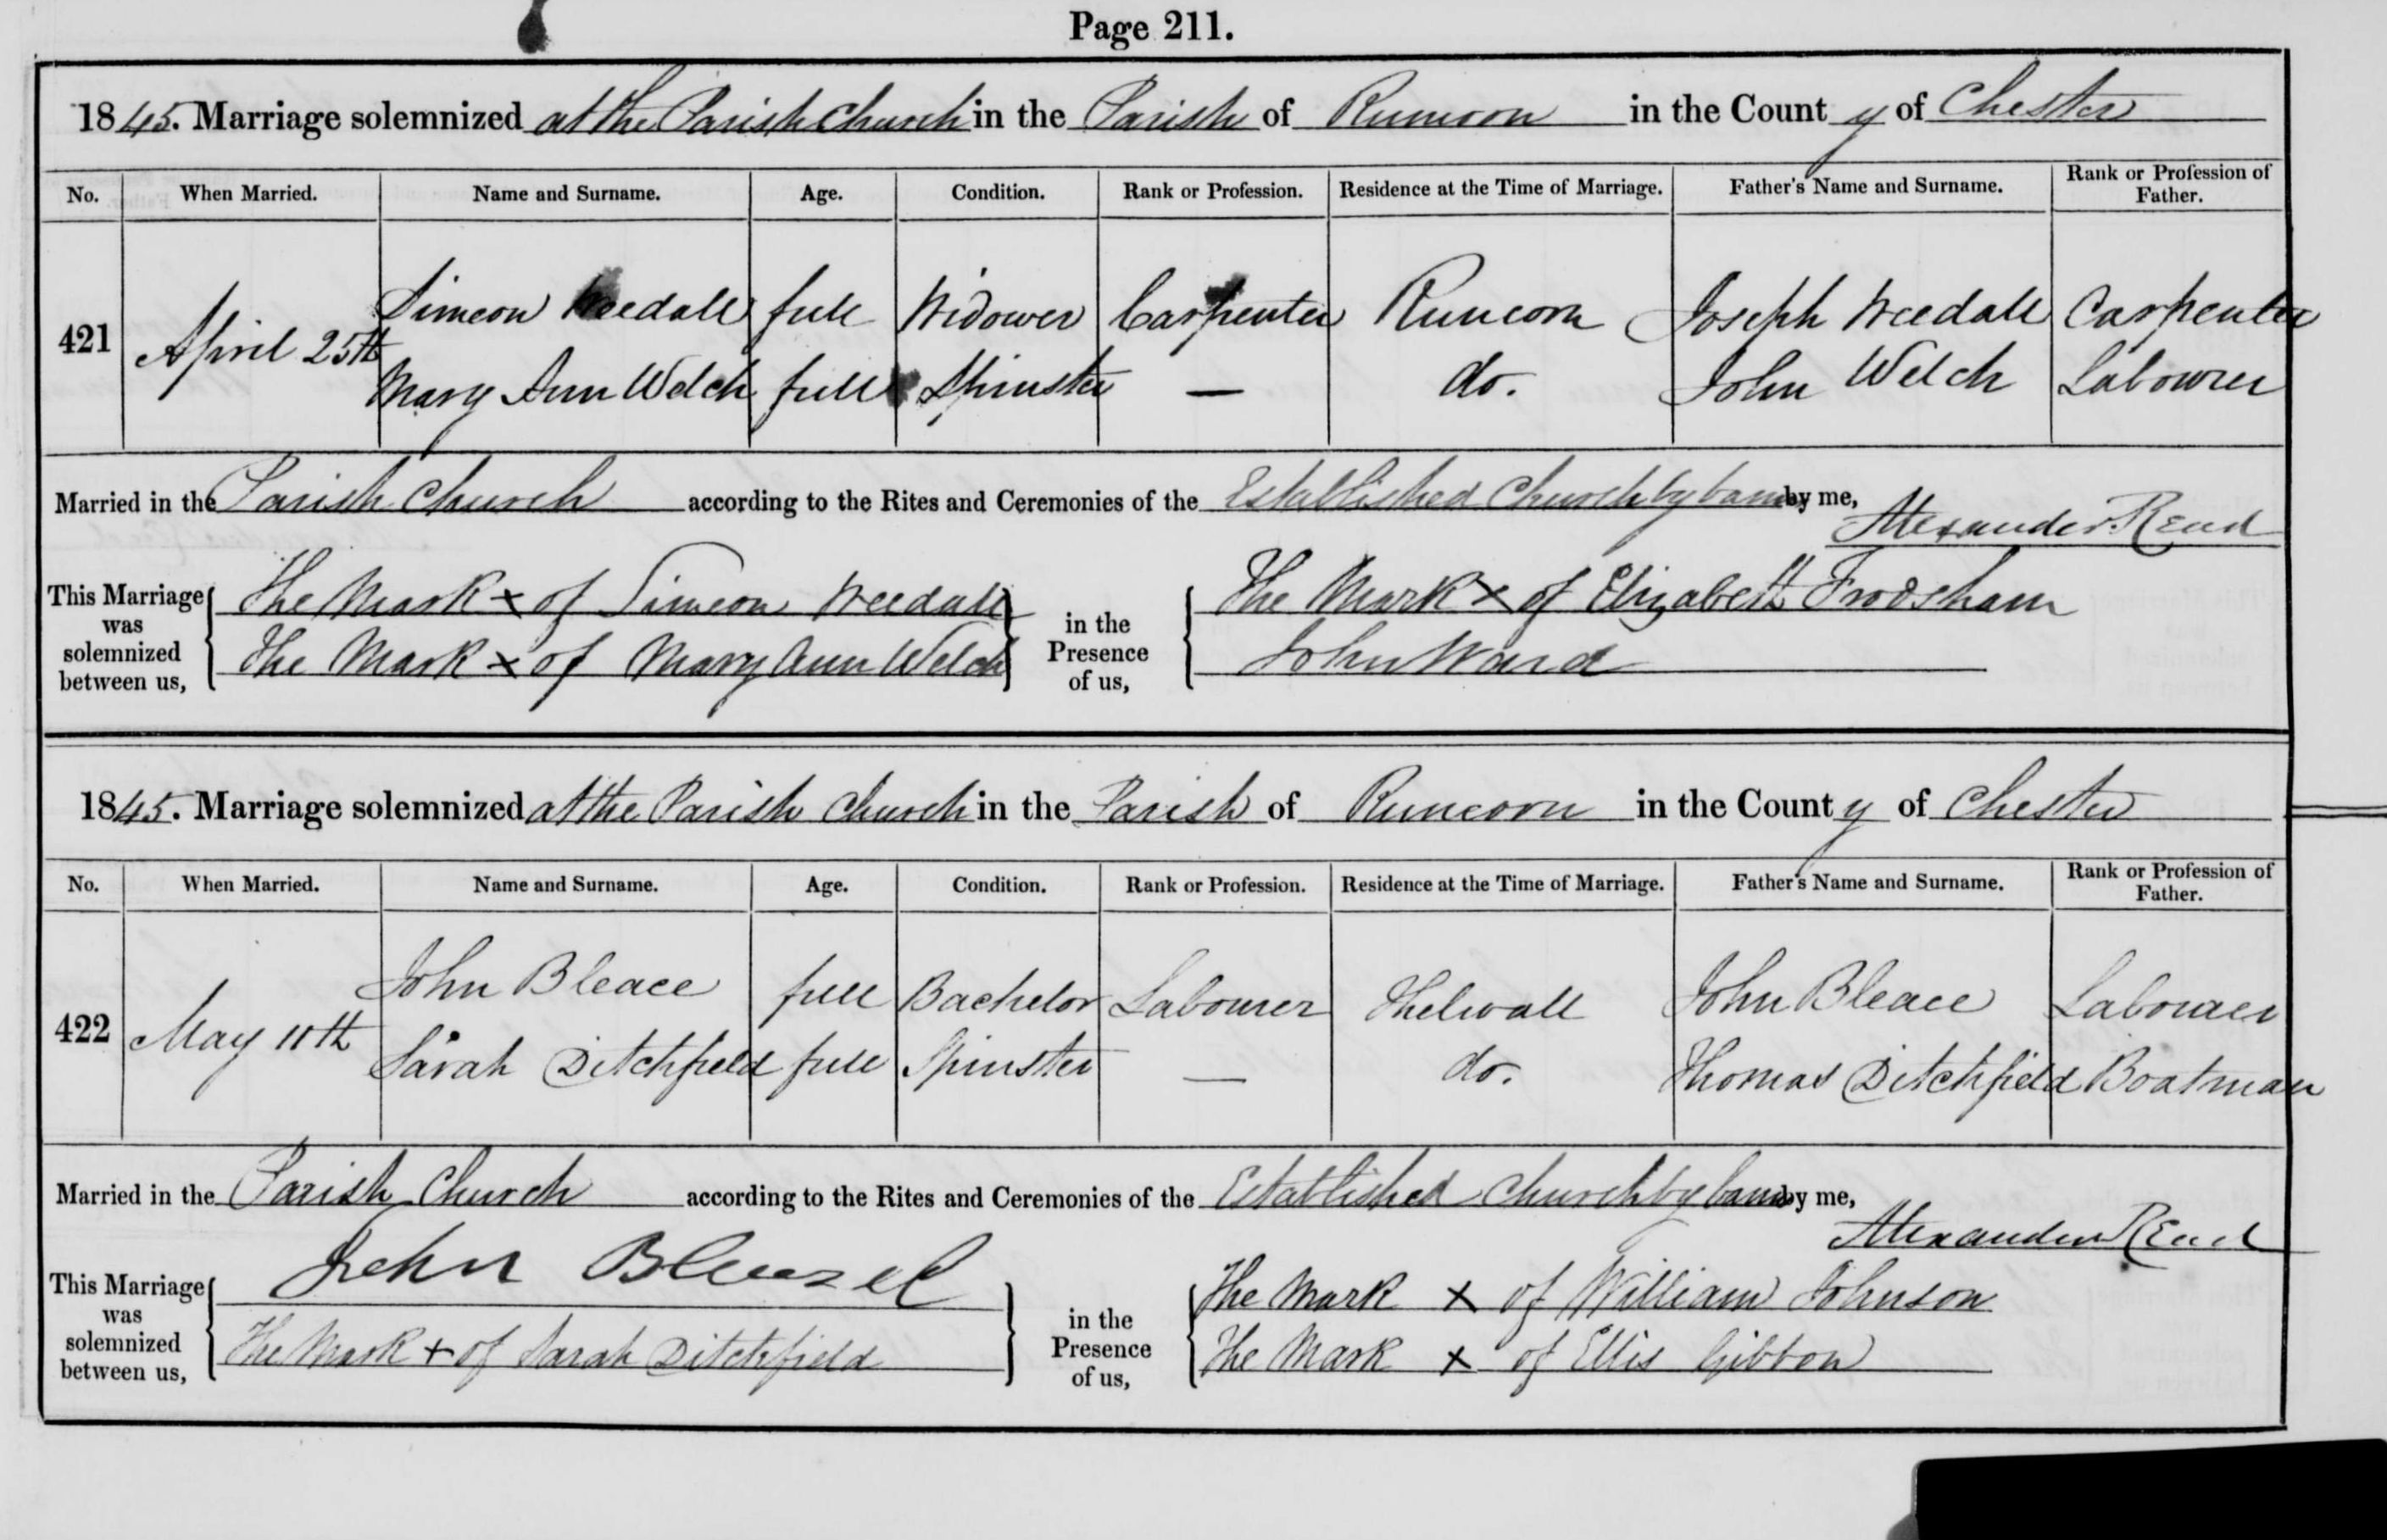 Page 211.
1845. Marriage solemnized at the Parish Church in the Parish of Runcorn in the County of Chester
No. When Married. Name and Surname. Age. Condition. Rank or Profession. Residence at the Time of Marriage. Father's Name and Surname. Rank or Profession of Father.
Simeon Weedall full Widower Carpenter Runcorn Joseph Weedall Carpenter
421 April 25th
Mary Ann Welch full Spinster — do. John Welch Labourer
Married in the Parish Church according to the Rites and Ceremonies of the Established Church by banns by me,
Alexander Read
This Marriage was solemnized between us, The Mark x of Simeon Weedall in the Presence of us, The Mark x of Elizabeth Frodsham
The Mark x of Mary Ann Welch John Ward
1845. Marriage solemnized at the Parish Church in the Parish of Runcorn in the County of Chester
No. When Married. Name and Surname. Age. Condition. Rank or Profession. Residence at the Time of Marriage. Father's Name and Surname. Rank or Profession of Father.
John Bleace full Bachelor Labourer Thelwall John Bleace Labourer
422 May 11th
Sarah Ditchfield full Spinster — do. Thomas Ditchfield Boatman
Married in the Parish Church according to the Rites and Ceremonies of the Established Church by banns by me,
Alexander Read
This Marriage was solemnized between us, John in the Presence of us, The Mark x of William Johnson
The Mark + of Sarah Ditchfield The Mark x of Ellis Gibbon